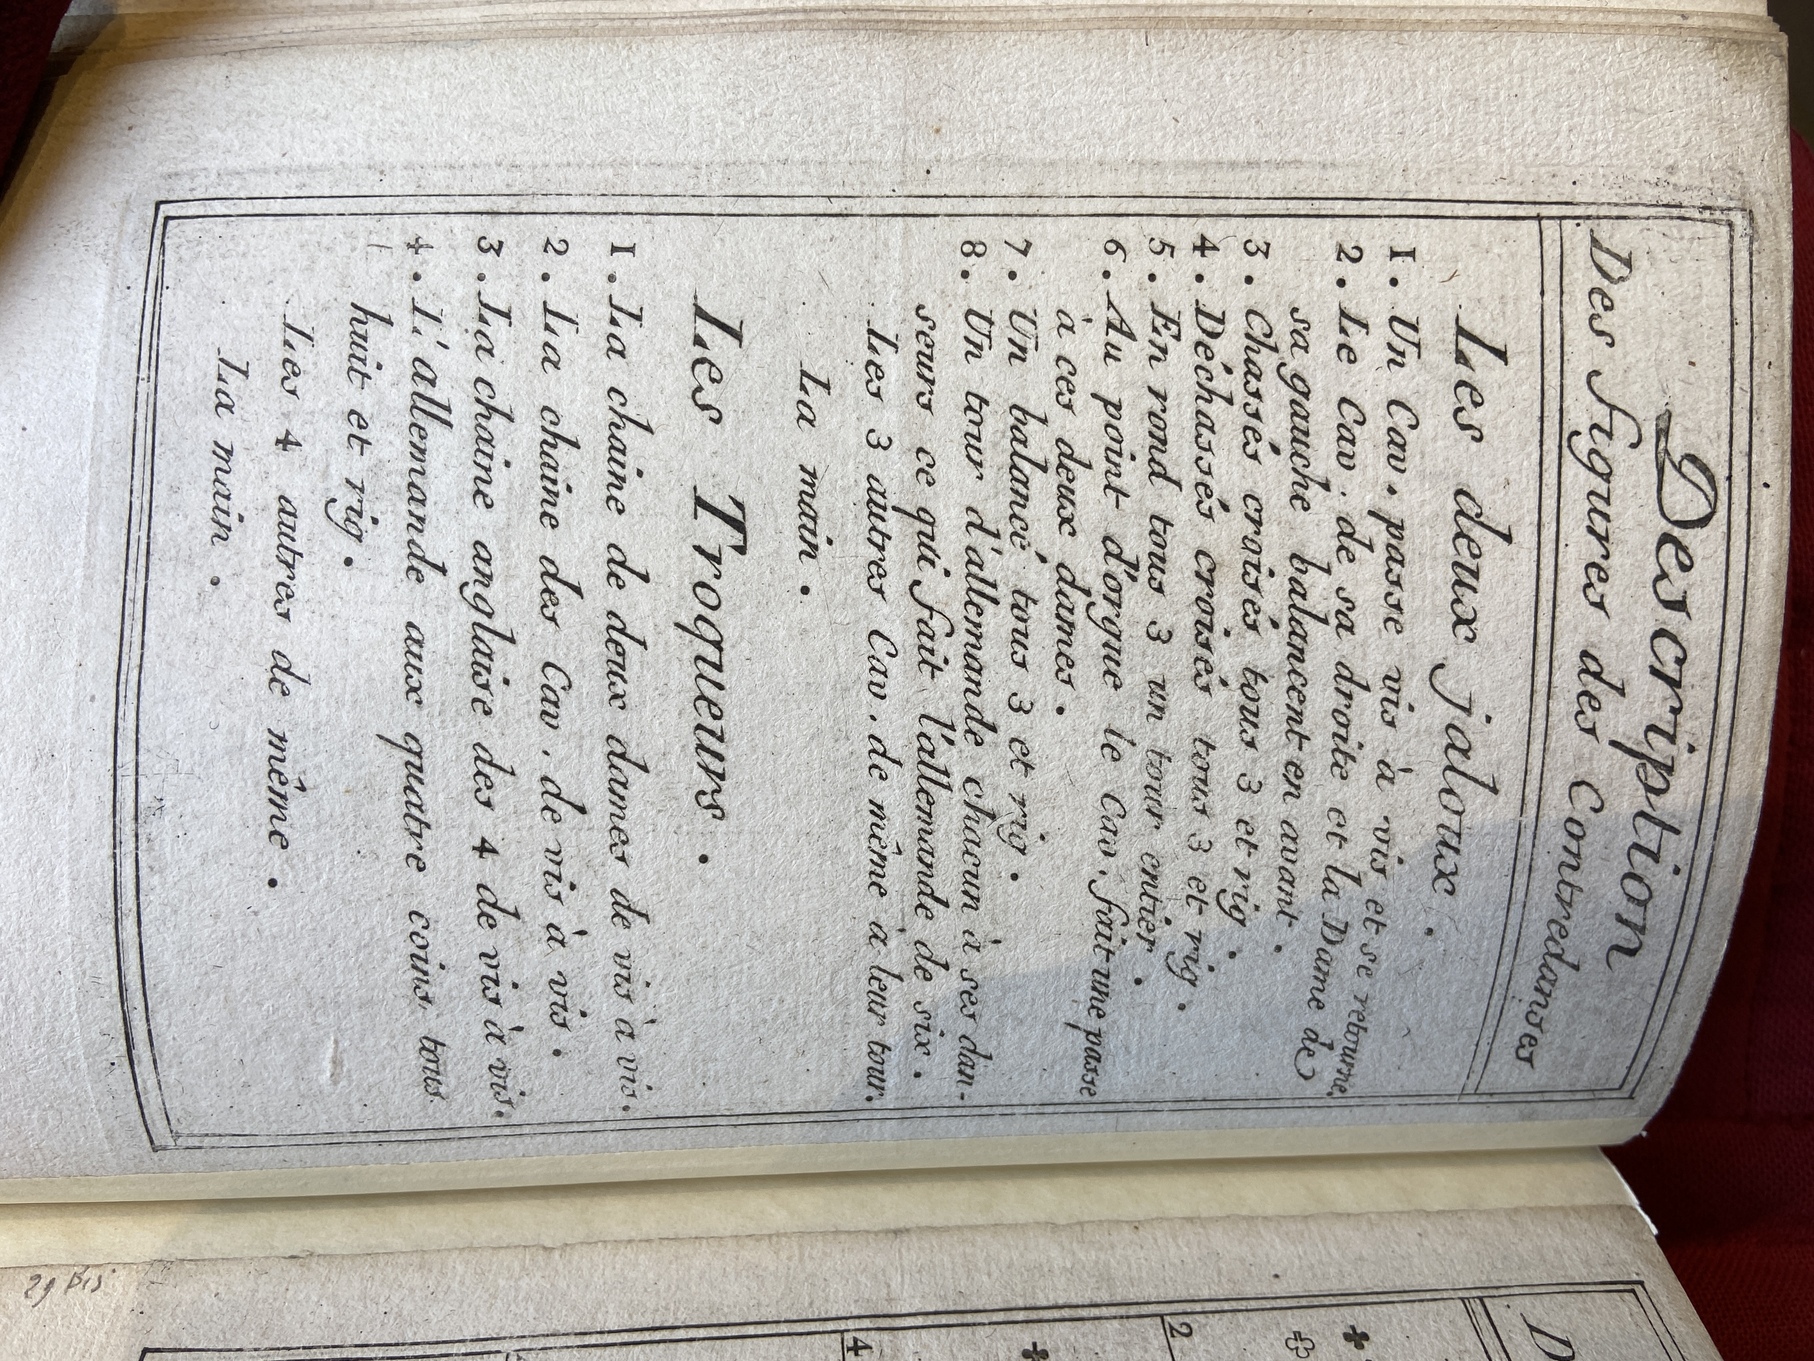 Description
Des figures des Contredanses
Les deux jaloux.
1. Un Cav. passe vis à vis et se retourne.
2. Le Cav. de sa droite et la Dame de
sa gauche balancent en avant.
3. Chassés croisés tous 3 et rig.
4. Déchassés croisés tous 3 et rig.
5. En rond tous 3 un tour entier.
6. Au point d'orgue le Cav. fait une passe
à ces deux dames.
7. Un balancé tous 3 et rig.
8. Un tour d'allemande chacun à ses dan-
seurs ce qui fait l'allemande de six.
Les 3 autres Cav. de même à leur tour.
La main.
Les Troqueurs.
1. La chaine de deux dames de vis à vis.
2. La chaine des Cav. de vis à vis.
3. La chaine anglaise des 4 de vis à vis.
4. L'allemande aux quatre coins, tous
huit et rig.
Les 4 autres de même.
La main.
29 bis
D
2
4